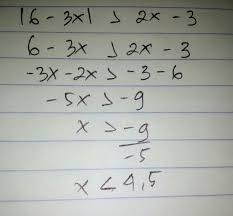 |6 - 3x| > 2x - 3
6 - 3x > 2x - 3
-3x - 2x > -3 - 6
-5x > -9
x > -9
-5
x < 4,5